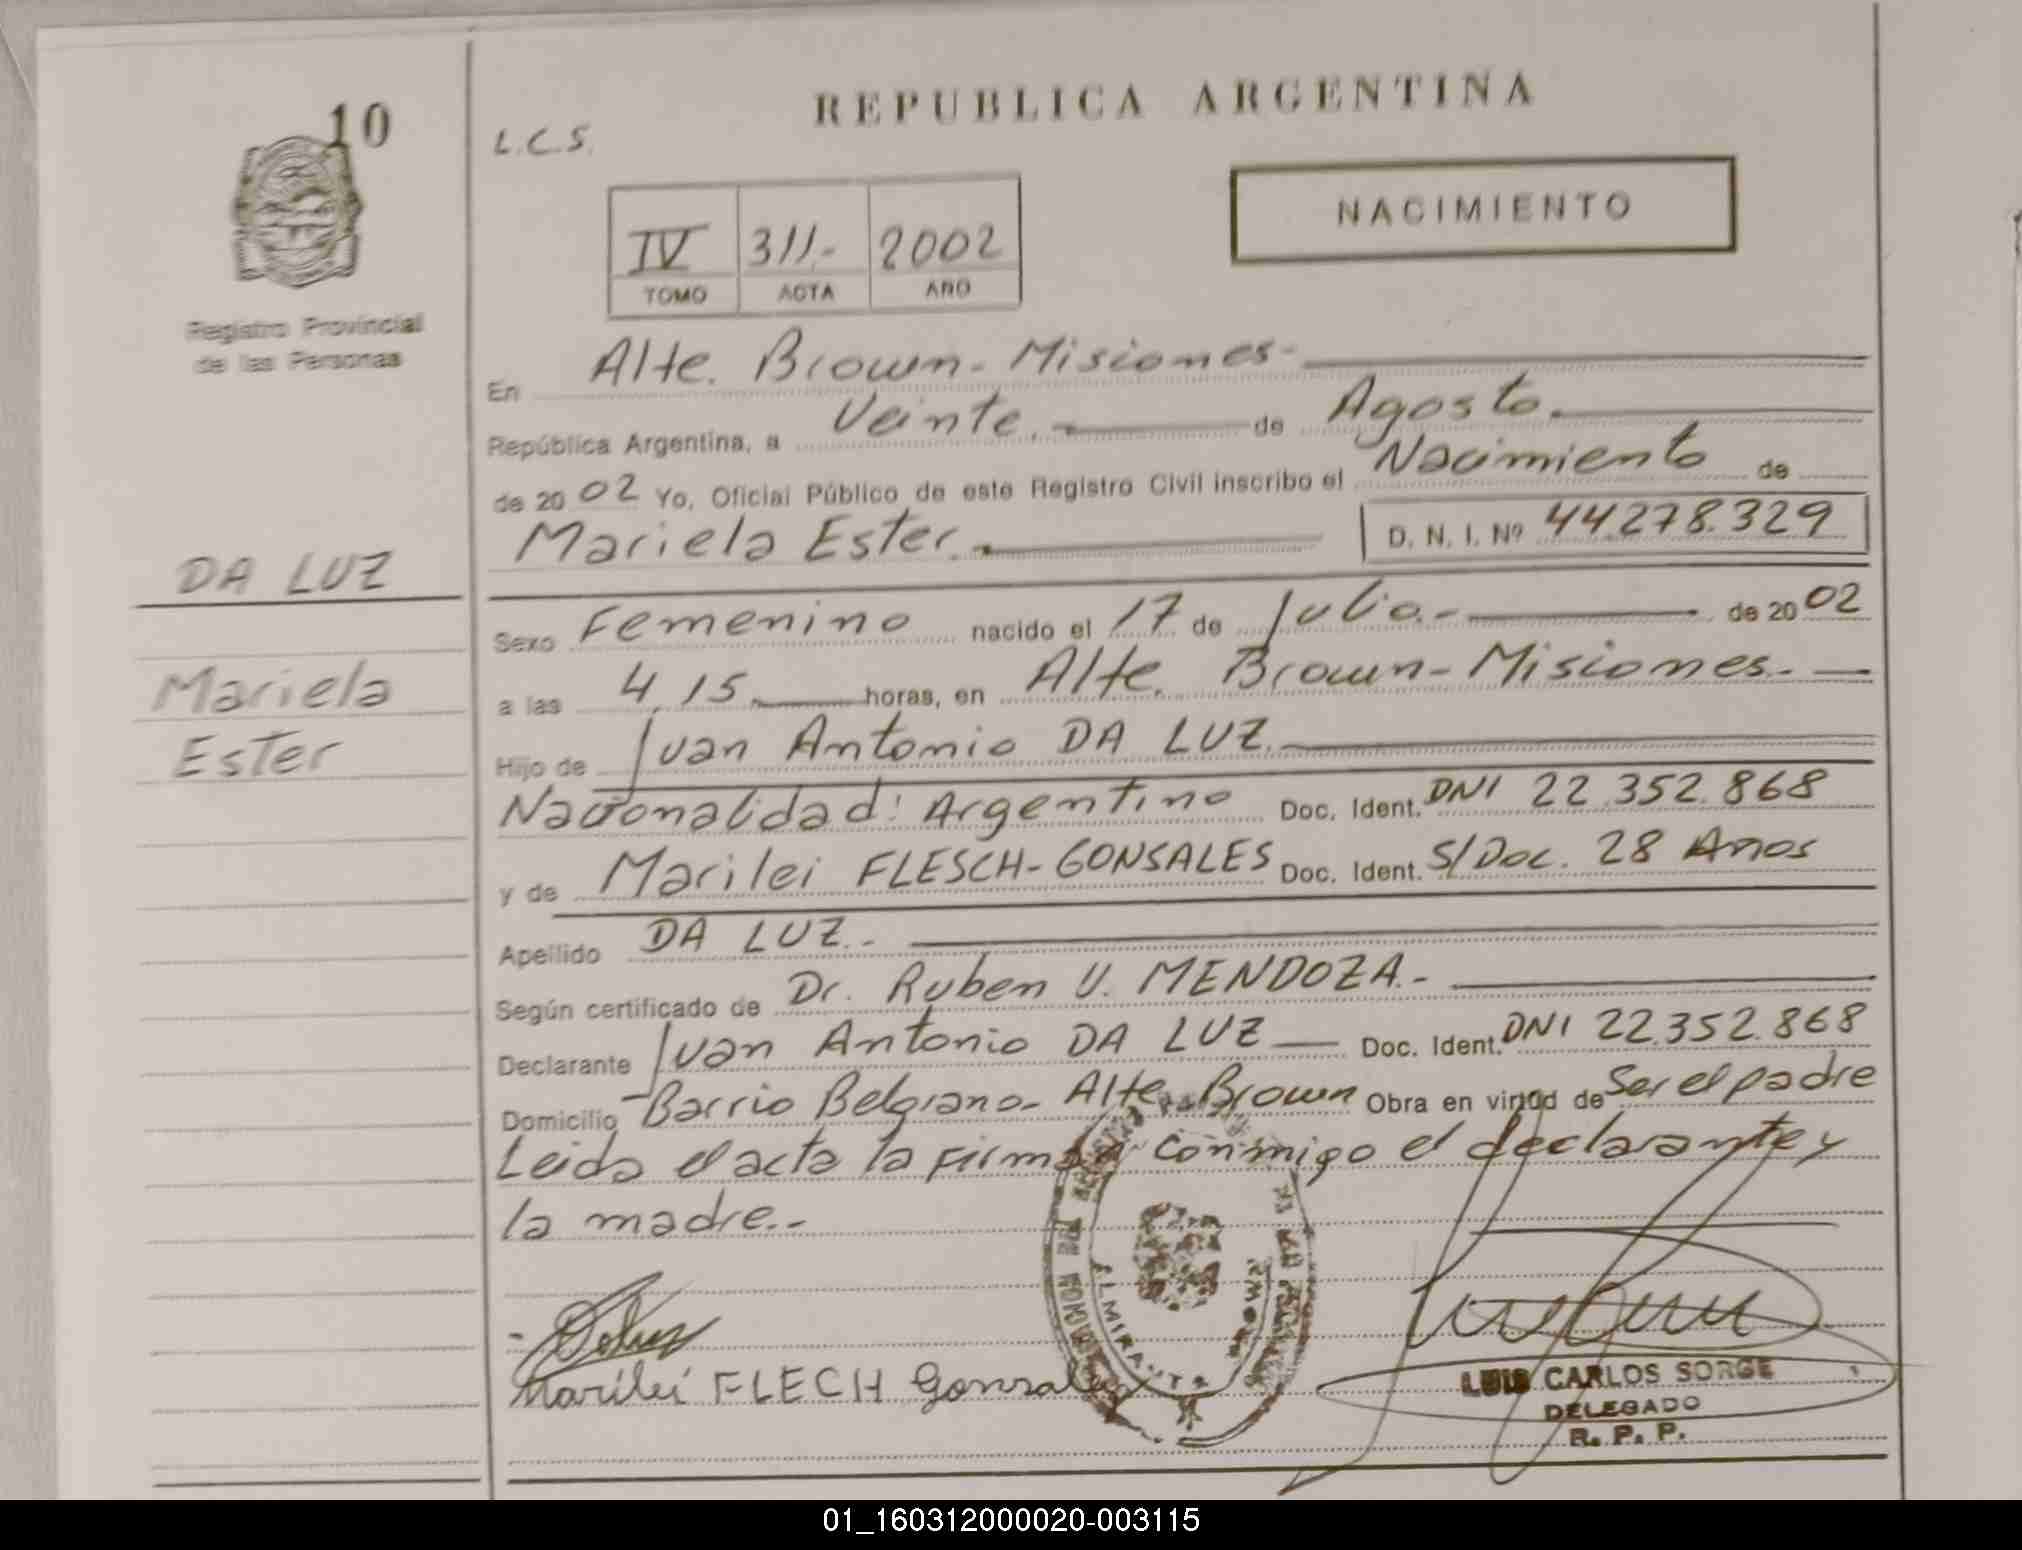 10
Registro Provincial
de las Personas
DA LUZ
Mariela
Ester
REPUBLICA ARGENTINA
L.C.S.
NACIMIENTO
IV 311.- 2002
TOMO ACTA AÑO
En Alte. Brown - Misiones -
República Argentina, a Veinte. de Agosto.
de 20 02 Yo, Oficial Público de este Registro Civil inscribo el Nacimiento de
Mariela Ester. D. N. I. Nº 44.278.329
Sexo Femenino nacido el 17 de Julio.- de 20 02
a las 4,15 horas, en Alte. Brown - Misiones.-
Hijo de Juan Antonio DA LUZ.
Nacionalidad: Argentino Doc. Ident. DNI 22.352.868
y de Marilei FLESCH-GONSALES Doc. Ident. S/Doc. 28 Años
Apellido DA LUZ.-
Según certificado de Dr. Ruben U. MENDOZA.-
Declarante Juan Antonio DA LUZ Doc. Ident. DNI 22.352.868
Domicilio Barrio Belgrano - Alte. Brown Obra en virtud de Ser el padre
Leida el acta la firman conmigo el declarante y
la madre.-
Marilei FLECH Gonsales
ALMIRANTE BROWN
LUIS CARLOS SORGE
DELEGADO
R. P. P.
01_160312000020-003115